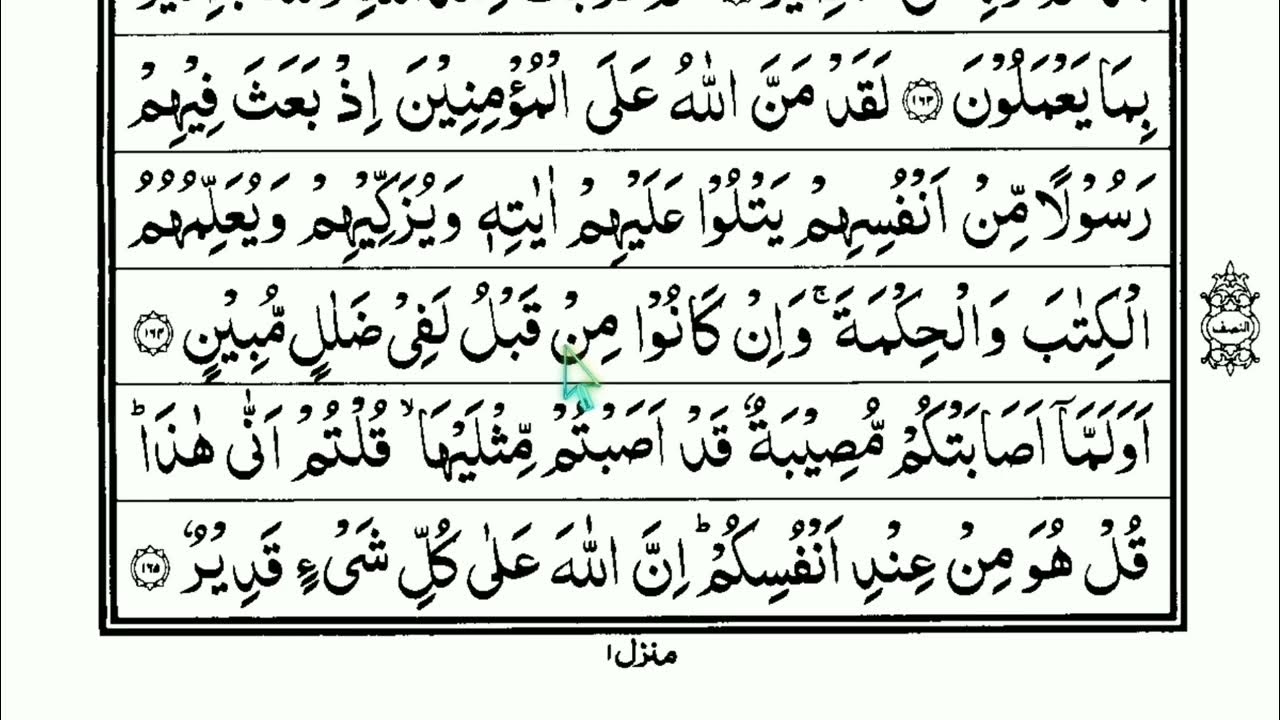 بِمَا يَعْمَلُوْنَ ۝١٦٣ لَقَدْ مَنَّ اللّٰهُ عَلَى الْمُؤْمِنِيْنَ اِذْ بَعَثَ فِيْهِمْ
رَسُوْلًا مِّنْ اَنْفُسِهِمْ يَتْلُوْا عَلَيْهِمْ اٰيٰتِهٖ وَيُزَكِّيْهِمْ وَيُعَلِّمُهُمُ
الْكِتٰبَ وَالْحِكْمَةَ ۚ وَاِنْ كَانُوْا مِنْ قَبْلُ لَفِيْ ضَلٰلٍ مُّبِيْنٍ ۝١٦٤
النصف
اَوَلَمَّآ اَصَابَتْكُمْ مُّصِيْبَةٌ قَدْ اَصَبْتُمْ مِّثْلَيْهَا ۙ قُلْتُمْ اَنّٰى هٰذَا ؕ
قُلْ هُوَ مِنْ عِنْدِ اَنْفُسِكُمْ ؕ اِنَّ اللّٰهَ عَلٰى كُلِّ شَيْءٍ قَدِيْرٌ ۝١٦٥
منزل١